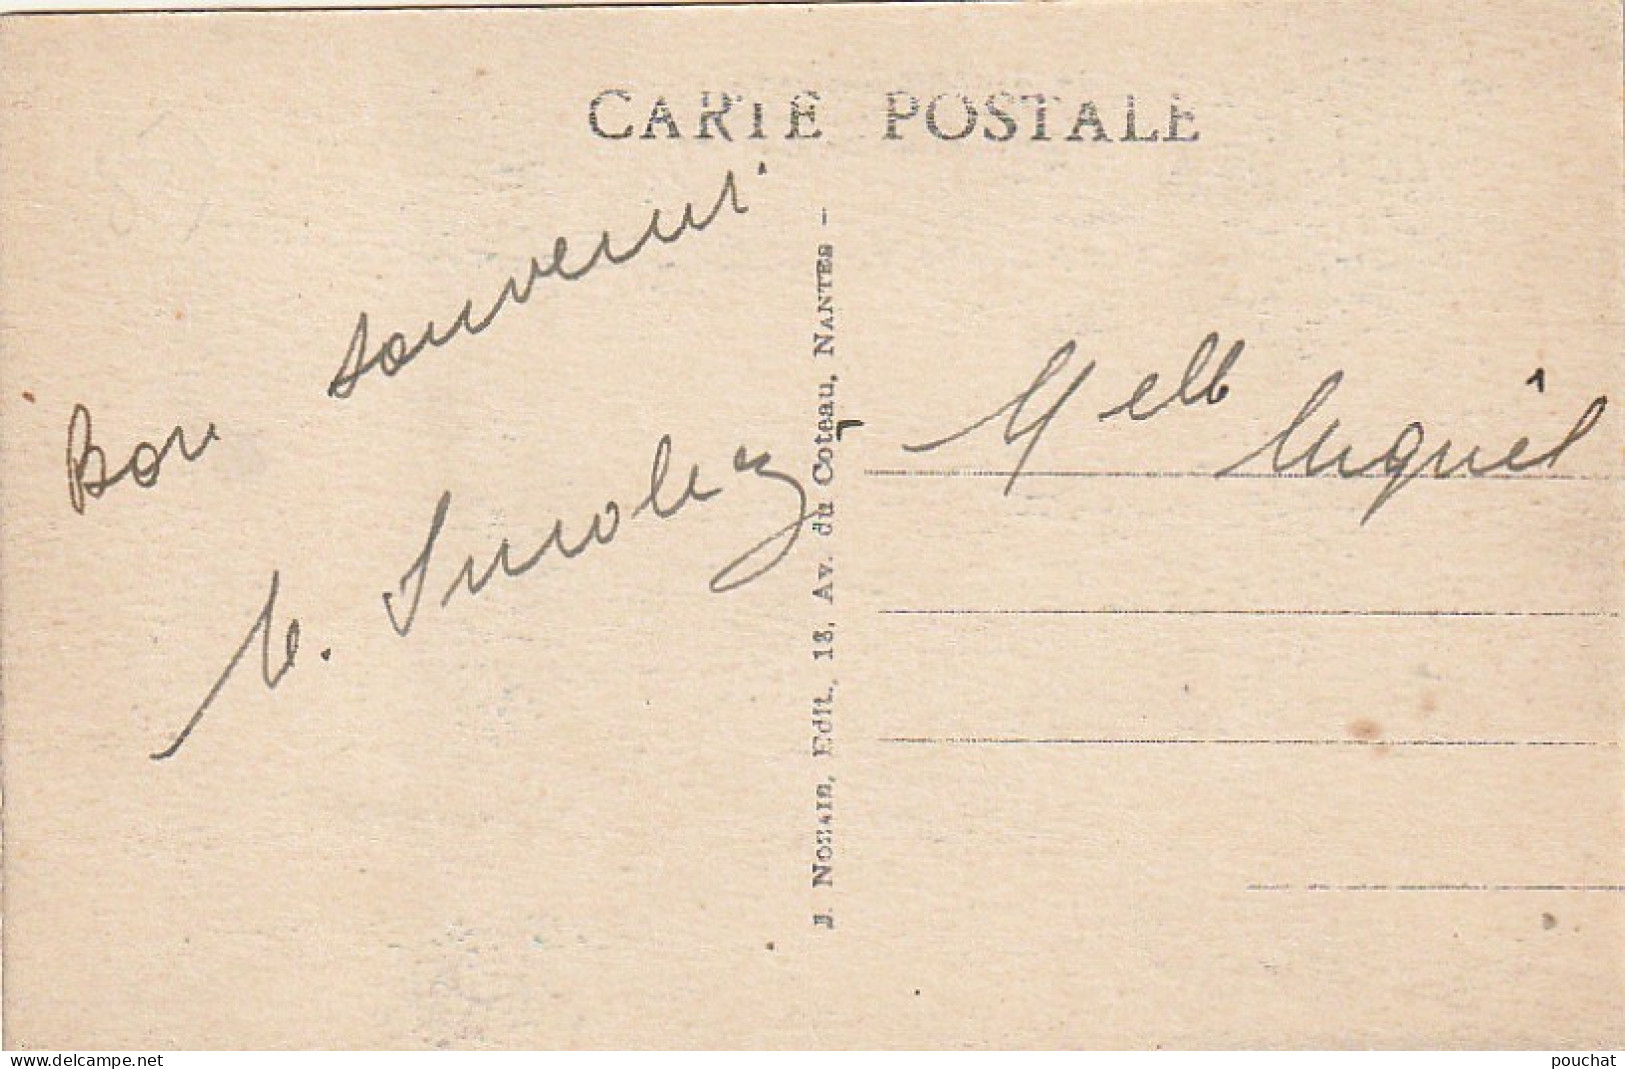 CARTE POSTALE
Bon souvenir
J. Nozais, Edit., 13, Av. du Coteau, NANTES -
Melle Miguel
www.delcampe.net
pouchat